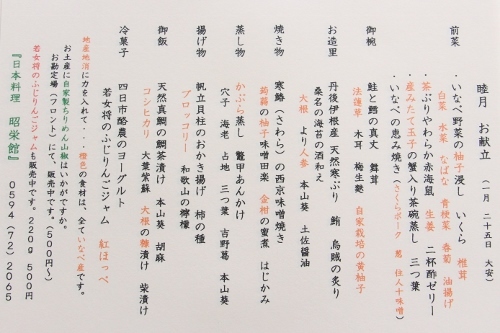 睦月 お献立 (一月 二十五日 大安)
前菜 ・いなべ野菜の柚子浸し いくら 椎茸
白菜 水菜 なばな 青梗菜 春菊 油揚げ
・茶ぶりやわらか赤海鼠 生姜 二杯酢ゼリー
・産みたて玉子の蟹入り茶碗蒸し 三つ葉
・いなべの恵み焼き(さくらポーク 葱 住人十味噌)
御椀 鮭と鱈の真丈 舞茸
法蓮草 木耳 梅生麩 自家栽培の黄柚子
お造里 丹後伊根産 天然寒ぶり 鮪 烏賊の炙り
桑名の海苔の酒和え
大根 より人参 本山葵 土佐醤油
焼き物 寒鰆(さわら)の西京味噌焼き
蒟蒻の柚子味噌田楽 金柑の蜜煮 はじかみ
蒸し物 かぶら蒸し 鼈甲あんかけ
穴子 海老 占地 三つ葉 吉野葛 本山葵
揚げ物 帆立貝柱のおかき揚げ 柿の種
ブロッコリー 和歌山の檸檬
御飯 天然真鯛の鯛茶漬け 本山葵 胡麻
コシヒカリ 大葉紫蘇 大根の糠漬け 柴漬け
冷菓子 四日市酪農のヨーグルト
若女将のふじりんごジャム 紅ほっぺ
地産地消に力を入れて‥‥橙色の食材は、全ていなべ産です。
お土産に自家製ちりめん山椒はいかがですか。
お勘定場(フロント)にて、販売中です。(500円~)
若女将のふじりんごジャムも販売中です。220g 500円
『日本料理 昭栄館』 0594(72)2065